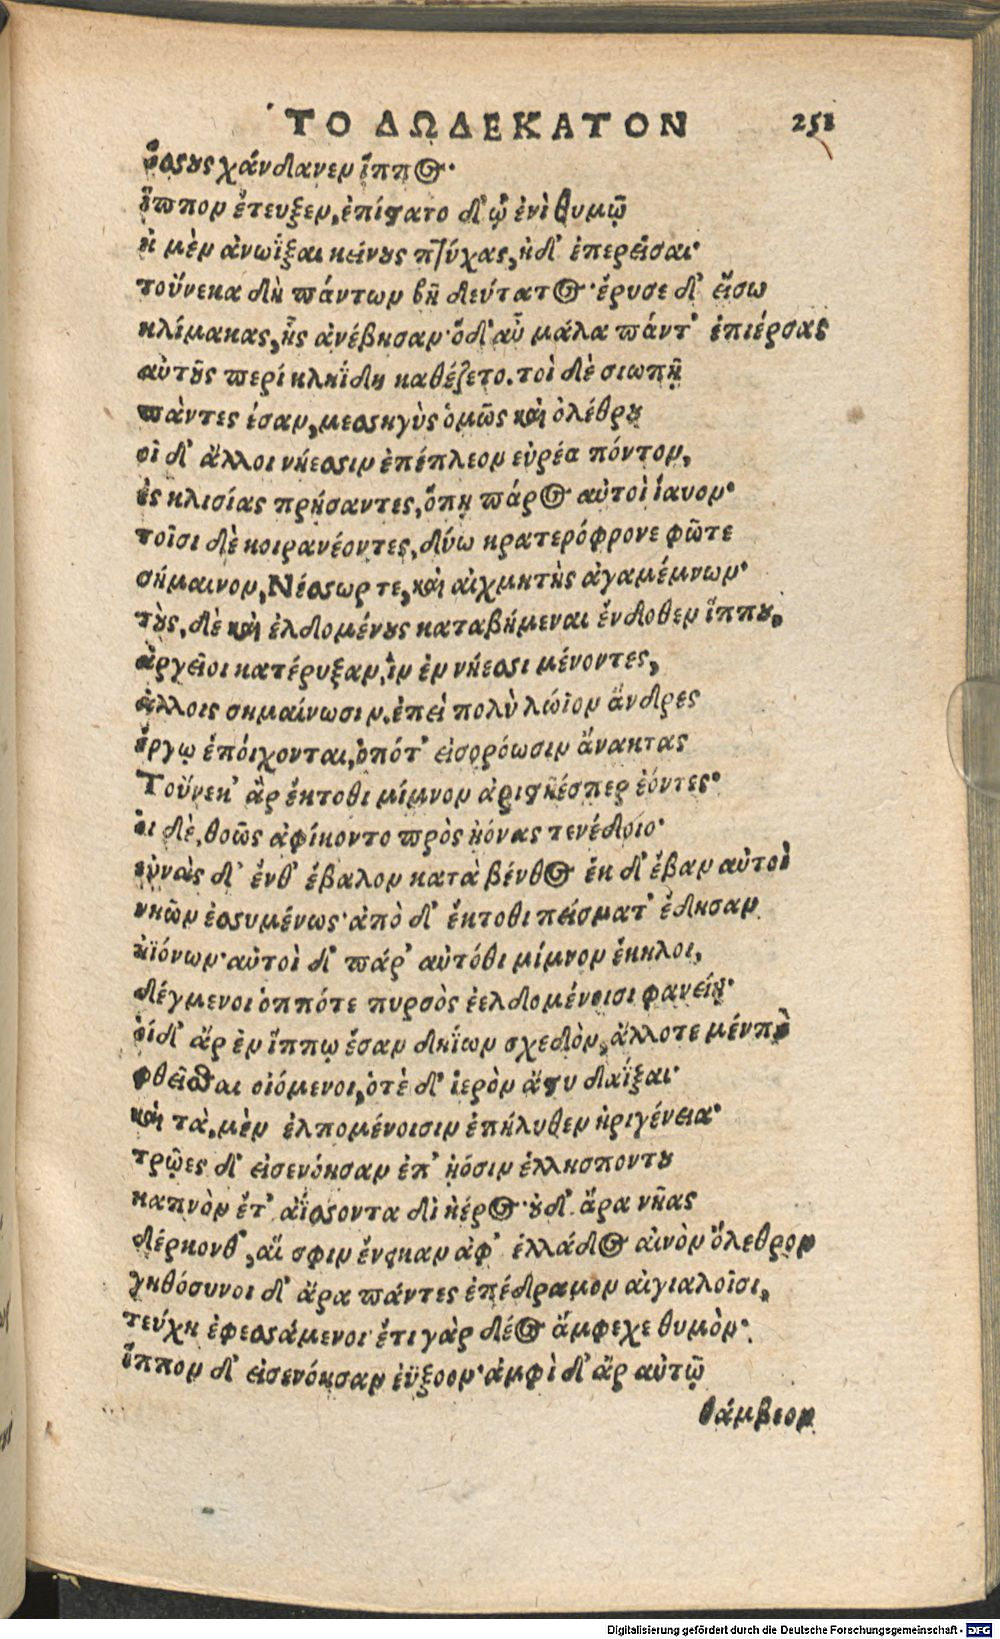 ΤΟ ΔΩΔΕΚΑΤΟΝ 251
ὅσσους χάνδανεν ἵππος·
ἵππον ἔτευξεν, ἐπίστατο δ' ᾧ ἐνὶ θυμῷ
ἠ μὲν ἀνωΐξαι κείνους πτύχας, ἠδ' ἐπερεῖσαι·
τοὔνεκα δὴ πάντων βῆ δεύτατος· ἔρυσε δ' εἴσω
κλίμακας, ᾗς ἀνέβησαν· ὅδ' αὖ μάλα πάντ' ἐπιέρσας
αὐτῆς περί κληΐδη καθέζετο. τοὶ δὲ σιωπῇ
πάντες ἔσαν, μεσσηγὺς ὁμῶς καὶ ὀλέθρου
οἱ δ' ἄλλοι νήεσσιν ἐπέπλεον εὐρέα πόντον,
ἐς κλισίας πρήσαντες, ὅπῃ πάρος αὐτοὶ ἴαυον·
τοῖσι δὲ κοιρανέοντες, δύω κρατερόφρονε φῶτε
σήμαινον, Νέσωρ τε, καὶ αἰχμητὴς ἀγαμέμνων·
τοὺς, δὲ καὶ ἐλδομένους καταβήμεναι ἔνδοθεν ἵππου,
ἀργεῖοι κατέρυξαν, ἵν ἐν νήεσσι μένοντες,
ἄλλοις σημαίνωσιν. ἐπεὶ πολὺ λώϊον ἄνδρες
ἔργῳ ἐπόιχονται, ὁπότ' εἰσορόωσιν ἄνακτας
Τοὔνεκ' ἄρ ἔκτοθι μίμνον ἀριστῆέσπερ ἐόντες·
οἱ δὲ, θοῶς ἀφίκοντο πρὸς ᾐόνας τενέδοιο·
εὐνὰς δ' ἔνθ' ἔβαλον κατὰ βένθος ἐκ δ' ἔβαν αὐτοὶ
νηῶν ἐσσυμένως· ἀπὸ δ' ἔκτοθι πείσματ' ἔδησαν
ἠϊόνων· αὐτοὶ δ' πάρ' αὐτόθι μίμνον ἕκηλοι,
δέγμενοι ὁππότε πυρσὸς ἐελδομένοισι φανείη·
οἵδ' ἄρ ἐν ἵππῳ ἔσαν δηΐων σχεδὸν, ἄλλοτε μένπὸ
φθεῖσθαι οἰόμενοι, ὁτὲ δ' ἱερὸν ἄστυ δαΐξαι·
καὶ τὰ, μὲν ἐλπομένοισιν ἐπήλυθεν ἠριγένεια·
τρῶες δ' εἰσενόησαν ἐπ' ᾐόσιν ἑλλησποντου
καπνὸν ἔτ' ἀΐσσοντα δι ἠέρος· οὐδ' ἄρα νῆας
δέρκονθ', αἵ σφιν ἔνεικαν ἀφ' ἑλλάδος αἰνὸν ὄλεθρον
γηθόσυνοι δ' ἄρα πάντες ἐπέδραμον αἰγιαλοῖσι,
τεύχη ἐφεσσάμενοι· ἔτι γὰρ δέος ἄμφεχε θυμὸν·
ἵππον δ' εἰσενόησαν ἐΰξοον· ἀμφὶ δ' ἄρ αὐτῷ
θάμβεον
Digitalisierung gefördert durch die Deutsche Forschungsgemeinschaft - DFG